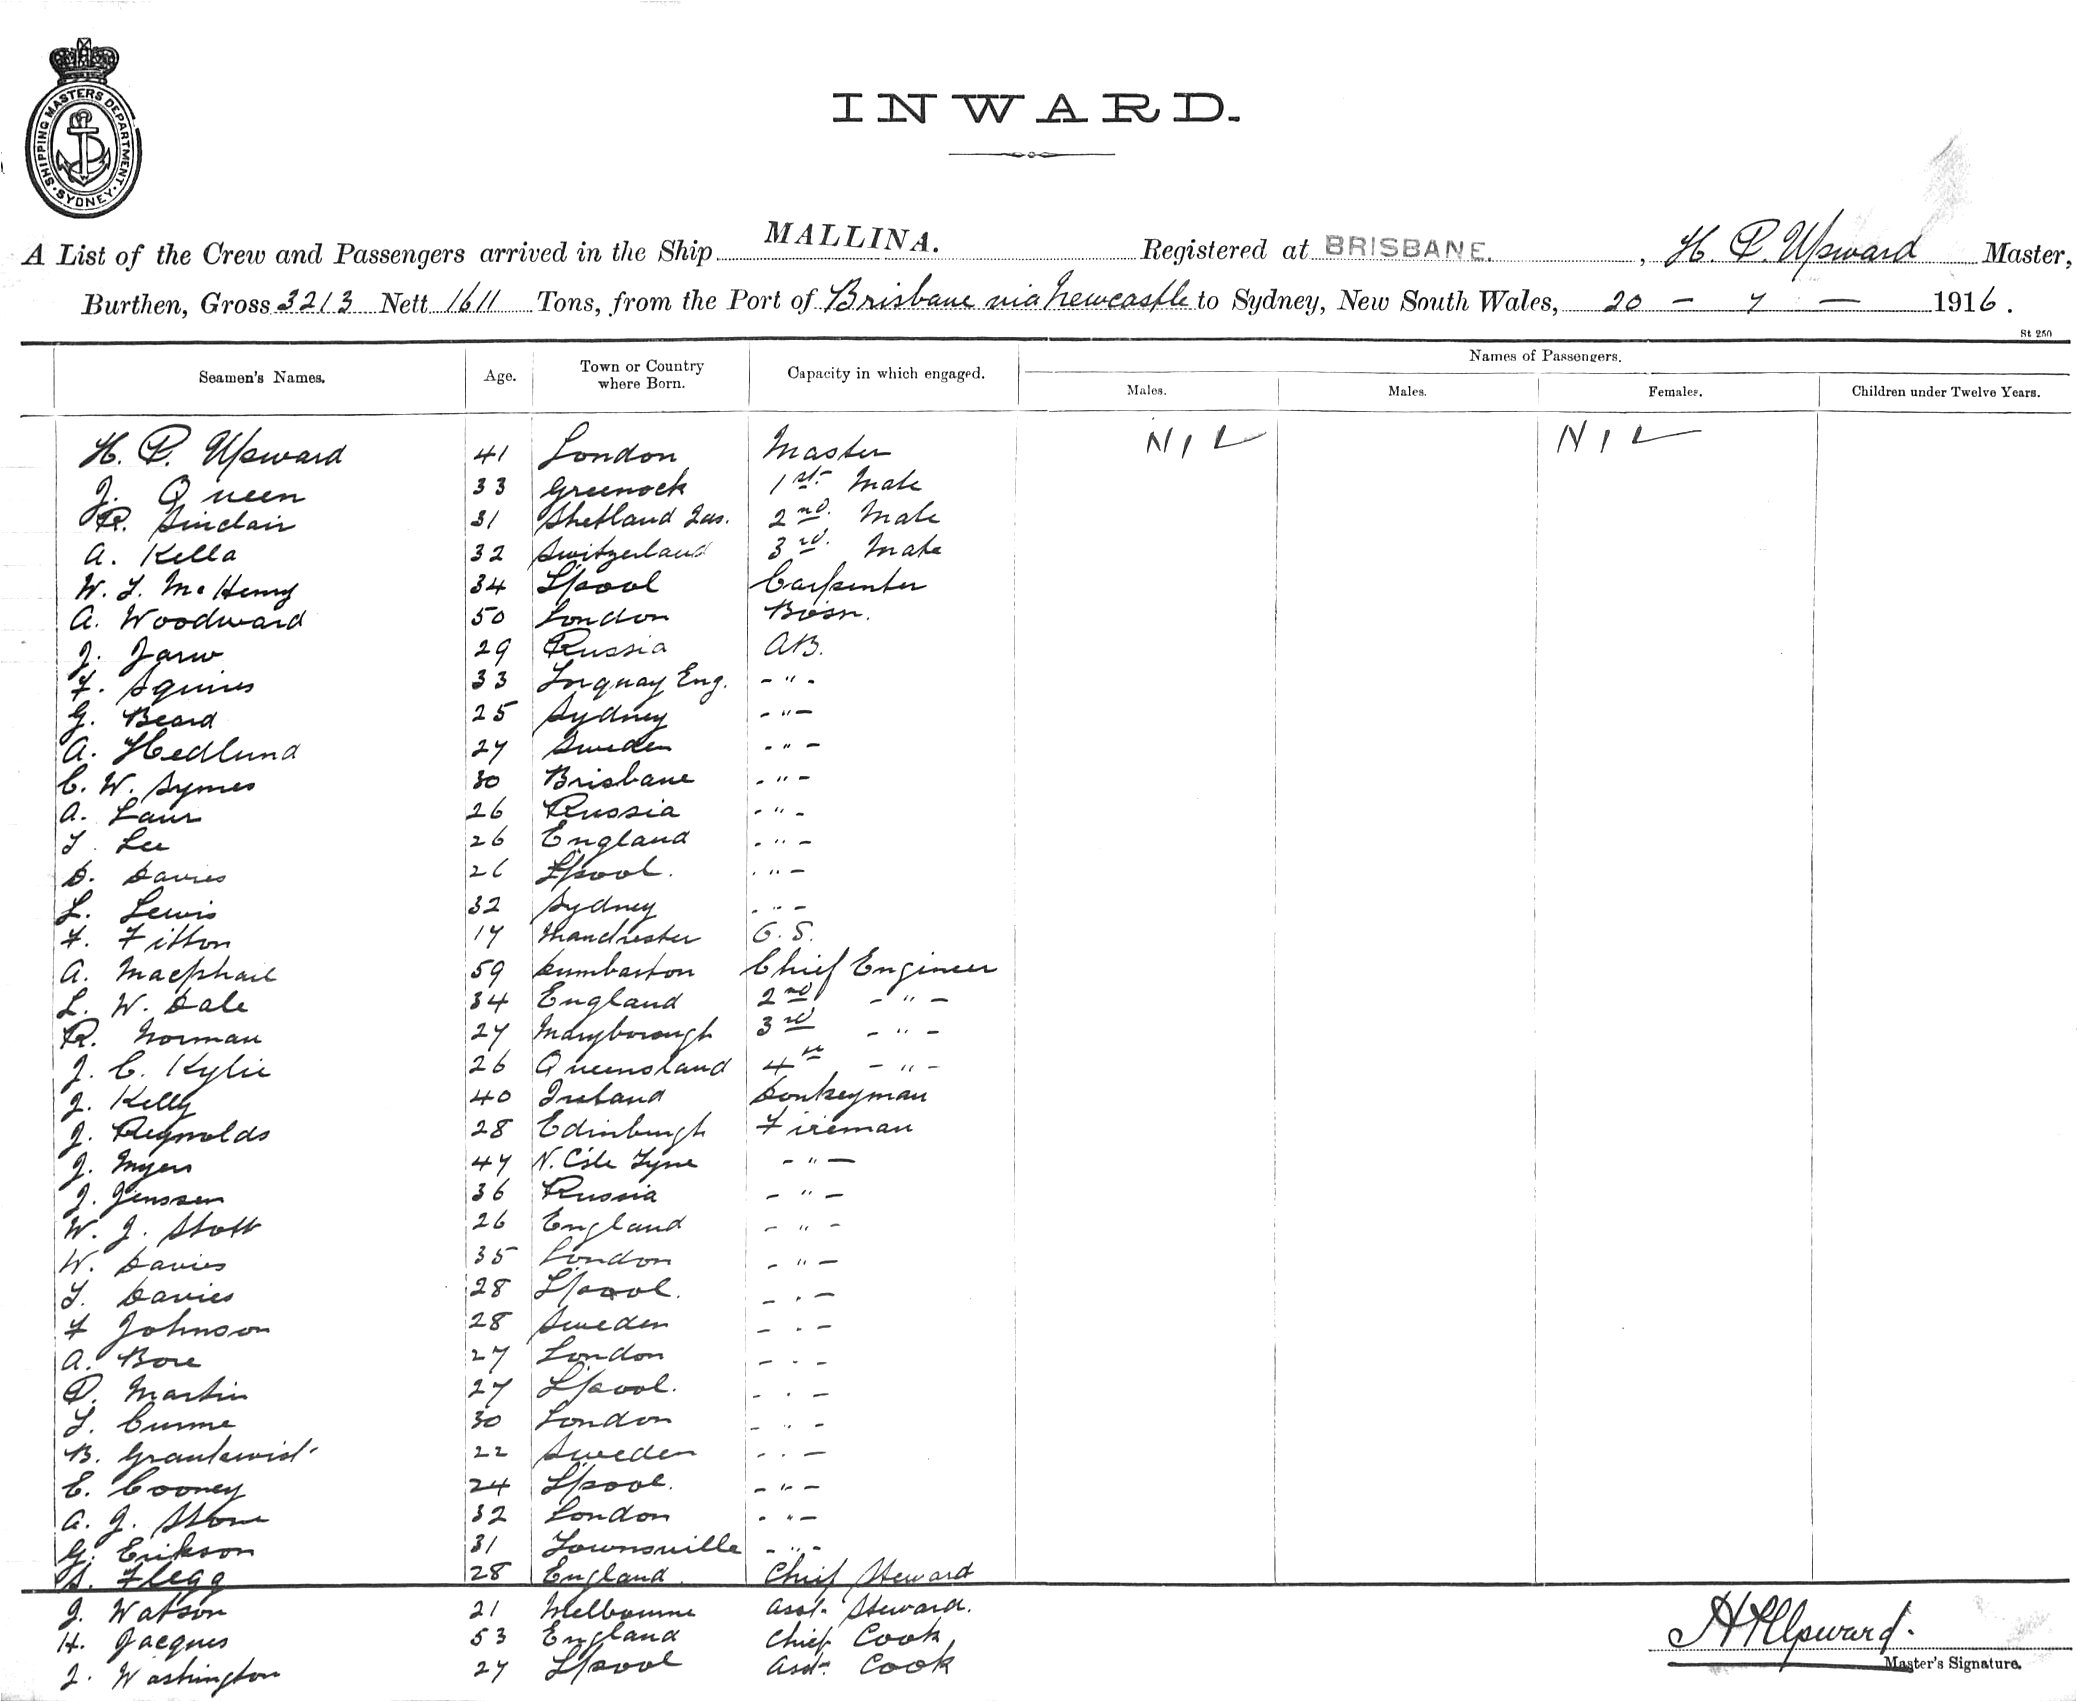 SHIPPING MASTERS DEPARTMENT. SYDNEY
INWARD.
A List of the Crew and Passengers arrived in the Ship MALLINA. Registered at BRISBANE. , H. P. Upward Master,
Burthen, Gross 3213 Nett 1611 Tons, from the Port of Brisbane via Newcastle to Sydney, New South Wales, 20 - 7 - 1916.
St 250
Seamen's Names. Age. Town or Country where Born. Capacity in which engaged. Names of Passengers.
Males. Males. Females. Children under Twelve Years.
H. P. Upward 41 London Master NIL NIL
J. Queen 33 Greenock 1st. Mate
R. Sinclair 31 Shetland Las. 2nd. Mate
A. Kella 32 Switzerland 3rd. Mate
W. J. McHenry 34 L'pool Carpenter
A. Woodward 50 London Bosn.
J. Jarw 29 Russia AB.
F. Squires 33 Torquay Eng. - " -
G. Beard 25 Sydney - " -
A. Hedlund 27 Sweden - " -
C. W. Symes 30 Brisbane - " -
A. Laur 26 Russia - " -
T. Lee 26 England - " -
D. Davies 26 L'pool. - " -
L. Lewis 32 Sydney - " -
F. Fitton 17 Manchester O.S.
A. Macphail 59 Dumbarton Chief Engineer
L. W. Dale 34 England 2nd - " -
R. Norman 27 Maryborough 3rd - " -
J. C. Kylie 26 Queensland 4th - " -
J. Kelly 40 Ireland Donkeyman
J. Reynolds 28 Edinburgh Fireman
J. Myers 47 N. C'sle Tyne - " -
J. Jenssen 36 Russia - " -
W. J. Stott 26 England - " -
W. Davies 35 London - " -
T. Davies 28 L'pool. - " -
F Johnson 28 Sweden - " -
A. Bore 27 London - " -
P. Martin 27 L'pool. - " -
T. Curme 30 London - " -
B. 22 Sweden - " -
E. Cooney 24 L'pool. - " -
A. J. Stone 32 London - " -
G. Erikson 31 Townsville - " -
S. Flegg 28 England. Chief Steward
J. Watson 21 Melbourne Asst. Steward.
H. Jacques 53 England Chief Cook
J. Washington 27 L'pool Asst. Cook
H P Upward.
Master's Signature.